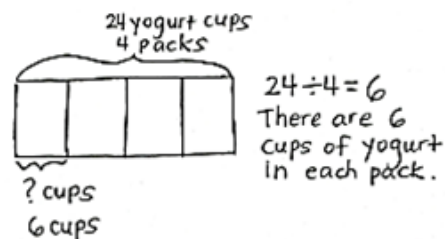 24 yogurt cups
4 packs
24÷4=6
There are 6
cups of yogurt
in each pack.
? cups
6 cups